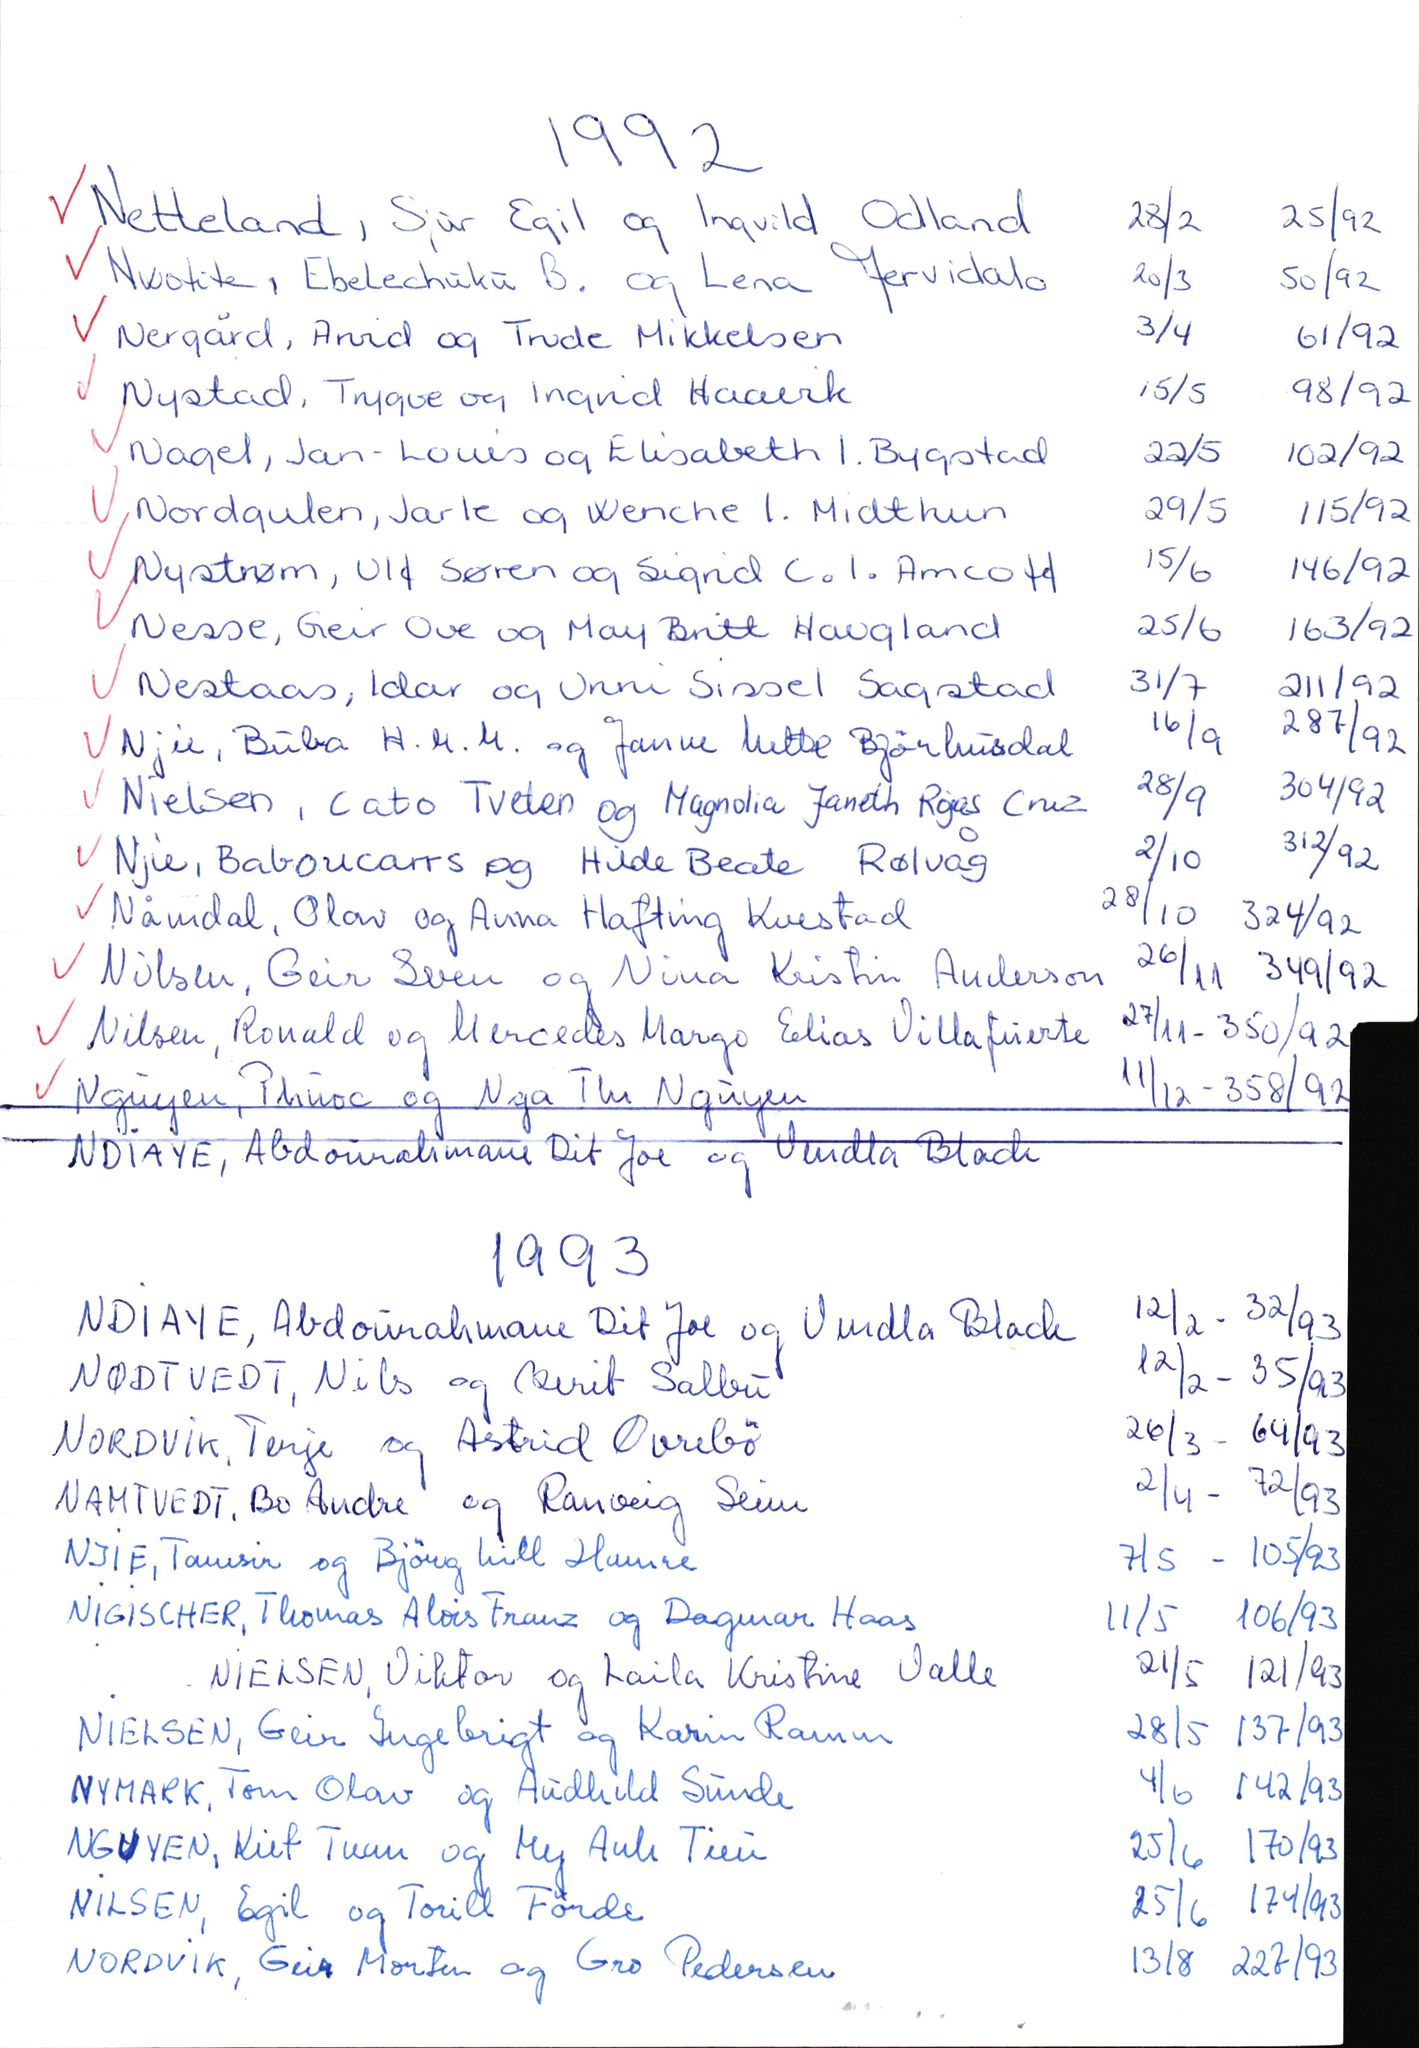 1992
Netteland, Sjur Egil og Ingvild Odland 28/2 25/92
Nwotite, Ebelechukū B. og Lena Jervidalo 20/3 50/92
Nergård, Arvid og Trude Mikkelsen 3/4 61/92
Nystad, Trygve og Ingrid Haavik 15/5 98/92
Nagel, Jan-Louis og Elisabeth I. Bygstad 22/5 102/92
Nordgulen, Jarle og Wenche I. Midthun 29/5 115/92
Nystrøm, Ulf Søren og Sigrid C. I. Amcoff 15/6 146/92
Nesse, Geir Ove og May Britt Haugland 25/6 163/92
Nestaas, Idar og Unni Sissel Sagstad 31/7 211/92
Njie, Būba H.M.M. og Janne Mette Bjørhūsdal 16/9 287/92
Nielsen, Cato Tveten og Magnolia Janeth Rojas Cruz 28/9 304/92
Njie, Baboucarrs og Hilde Beate Rølvåg 2/10 312/92
Nåmdal, Olav og Anna Hafting Kvestad 28/10 324/92
Nilsen, Geir Sven og Nina Kristin Anderson 26/11 349/92
Nilsen, Ronald og Mercedes Margo Elias Villafūerte 27/11 - 350/92
Ngūyen, Phūoc og Nga Thi Ngūyen 11/12 - 358/92
NDIAYE, Abdoūrahmane Dit Joe og Vendla Black
1993
NDIAYE, Abdoūrahmane Dit Joe og Vendla Black 12/2 - 32/93
NØDTVEDT, Nils og Berit Salbū 12/2 - 35/93
NORDVIK, Terje og Astrid Øvrebö 26/3 - 64/93
NAMTVEDT, Bo Andre og Ranveig Seim 2/4 - 72/93
NJIE, Tamsir og Björg Lill Hamre 7/5 - 105/93
NIGISCHER, Thomas Alois Franz og Dagmar Haas 11/5 106/93
NIELSEN, Viktor og Laila Kristine Valle 21/5 121/93
NIELSEN, Geir Ingebrigt og Karin Ramm 28/5 137/93
NYMARK, Tom Olav og Aūdhild Sūnde 4/6 142/93
NGUYEN, Kiet Tuan og My Anh Tieū 25/6 170/93
NILSEN, Egil og Torill Förde 25/6 174/93
NORDVIK, Geir Morten og Gro Pedersen 13/8 227/93